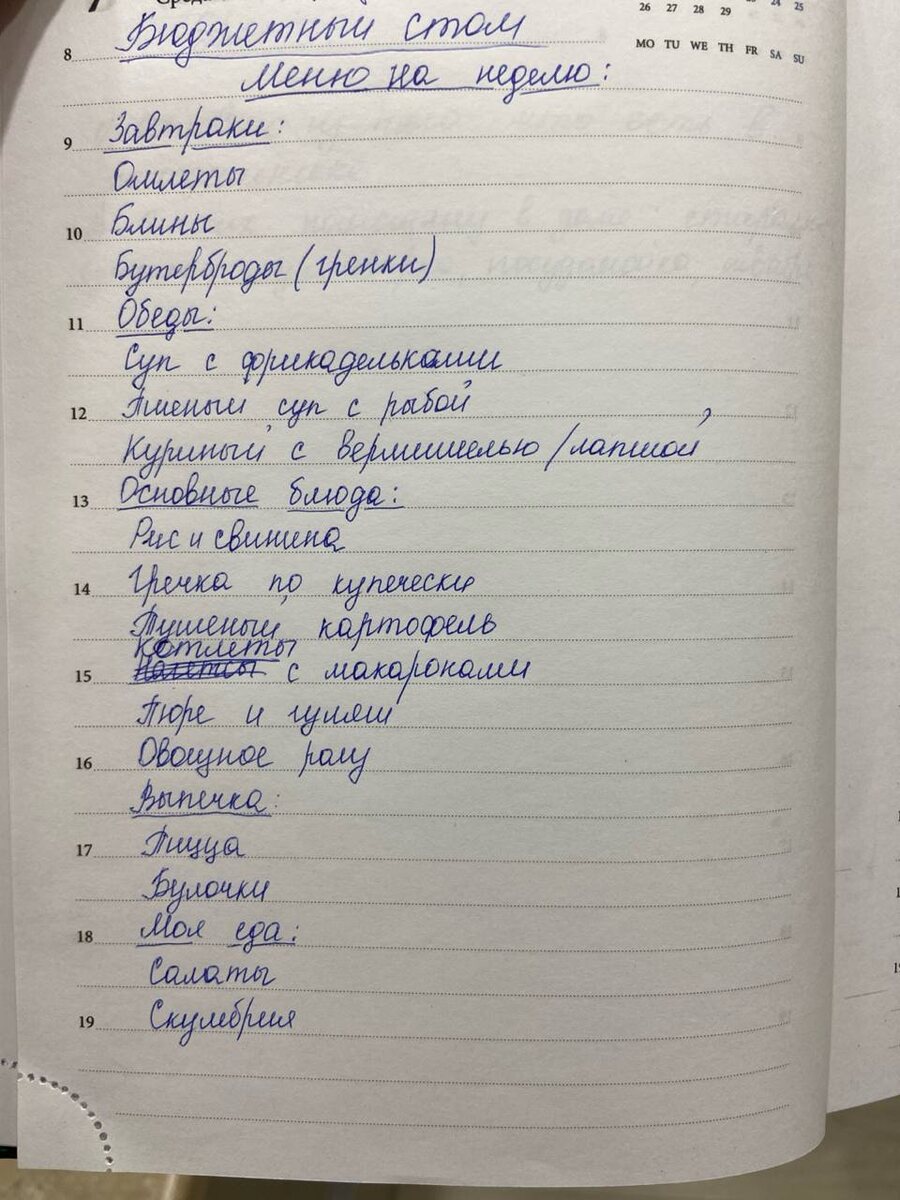 26 27 28 29 24 25
MO TU WE TH FR SA SU
8 Бюджетный стол
Меню на неделю:
9 Завтраки:
Омлеты
10 Блины
Бутерброды (гренки)
11 Обеды:
Суп с фрикадельками
12 Пшеный суп с рыбой
Куриный с вермишелью /лапшой
13 Основные блюда:
Рис и свинина
14 Гречка по купечески
Тушеный картофель
Котлеты
15 с макаронами
Пюре и гуляш
16 Овощное рагу
Выпечка:
17 Пицца
Булочки
18 Моя еда:
Салаты
19 Скумбрия